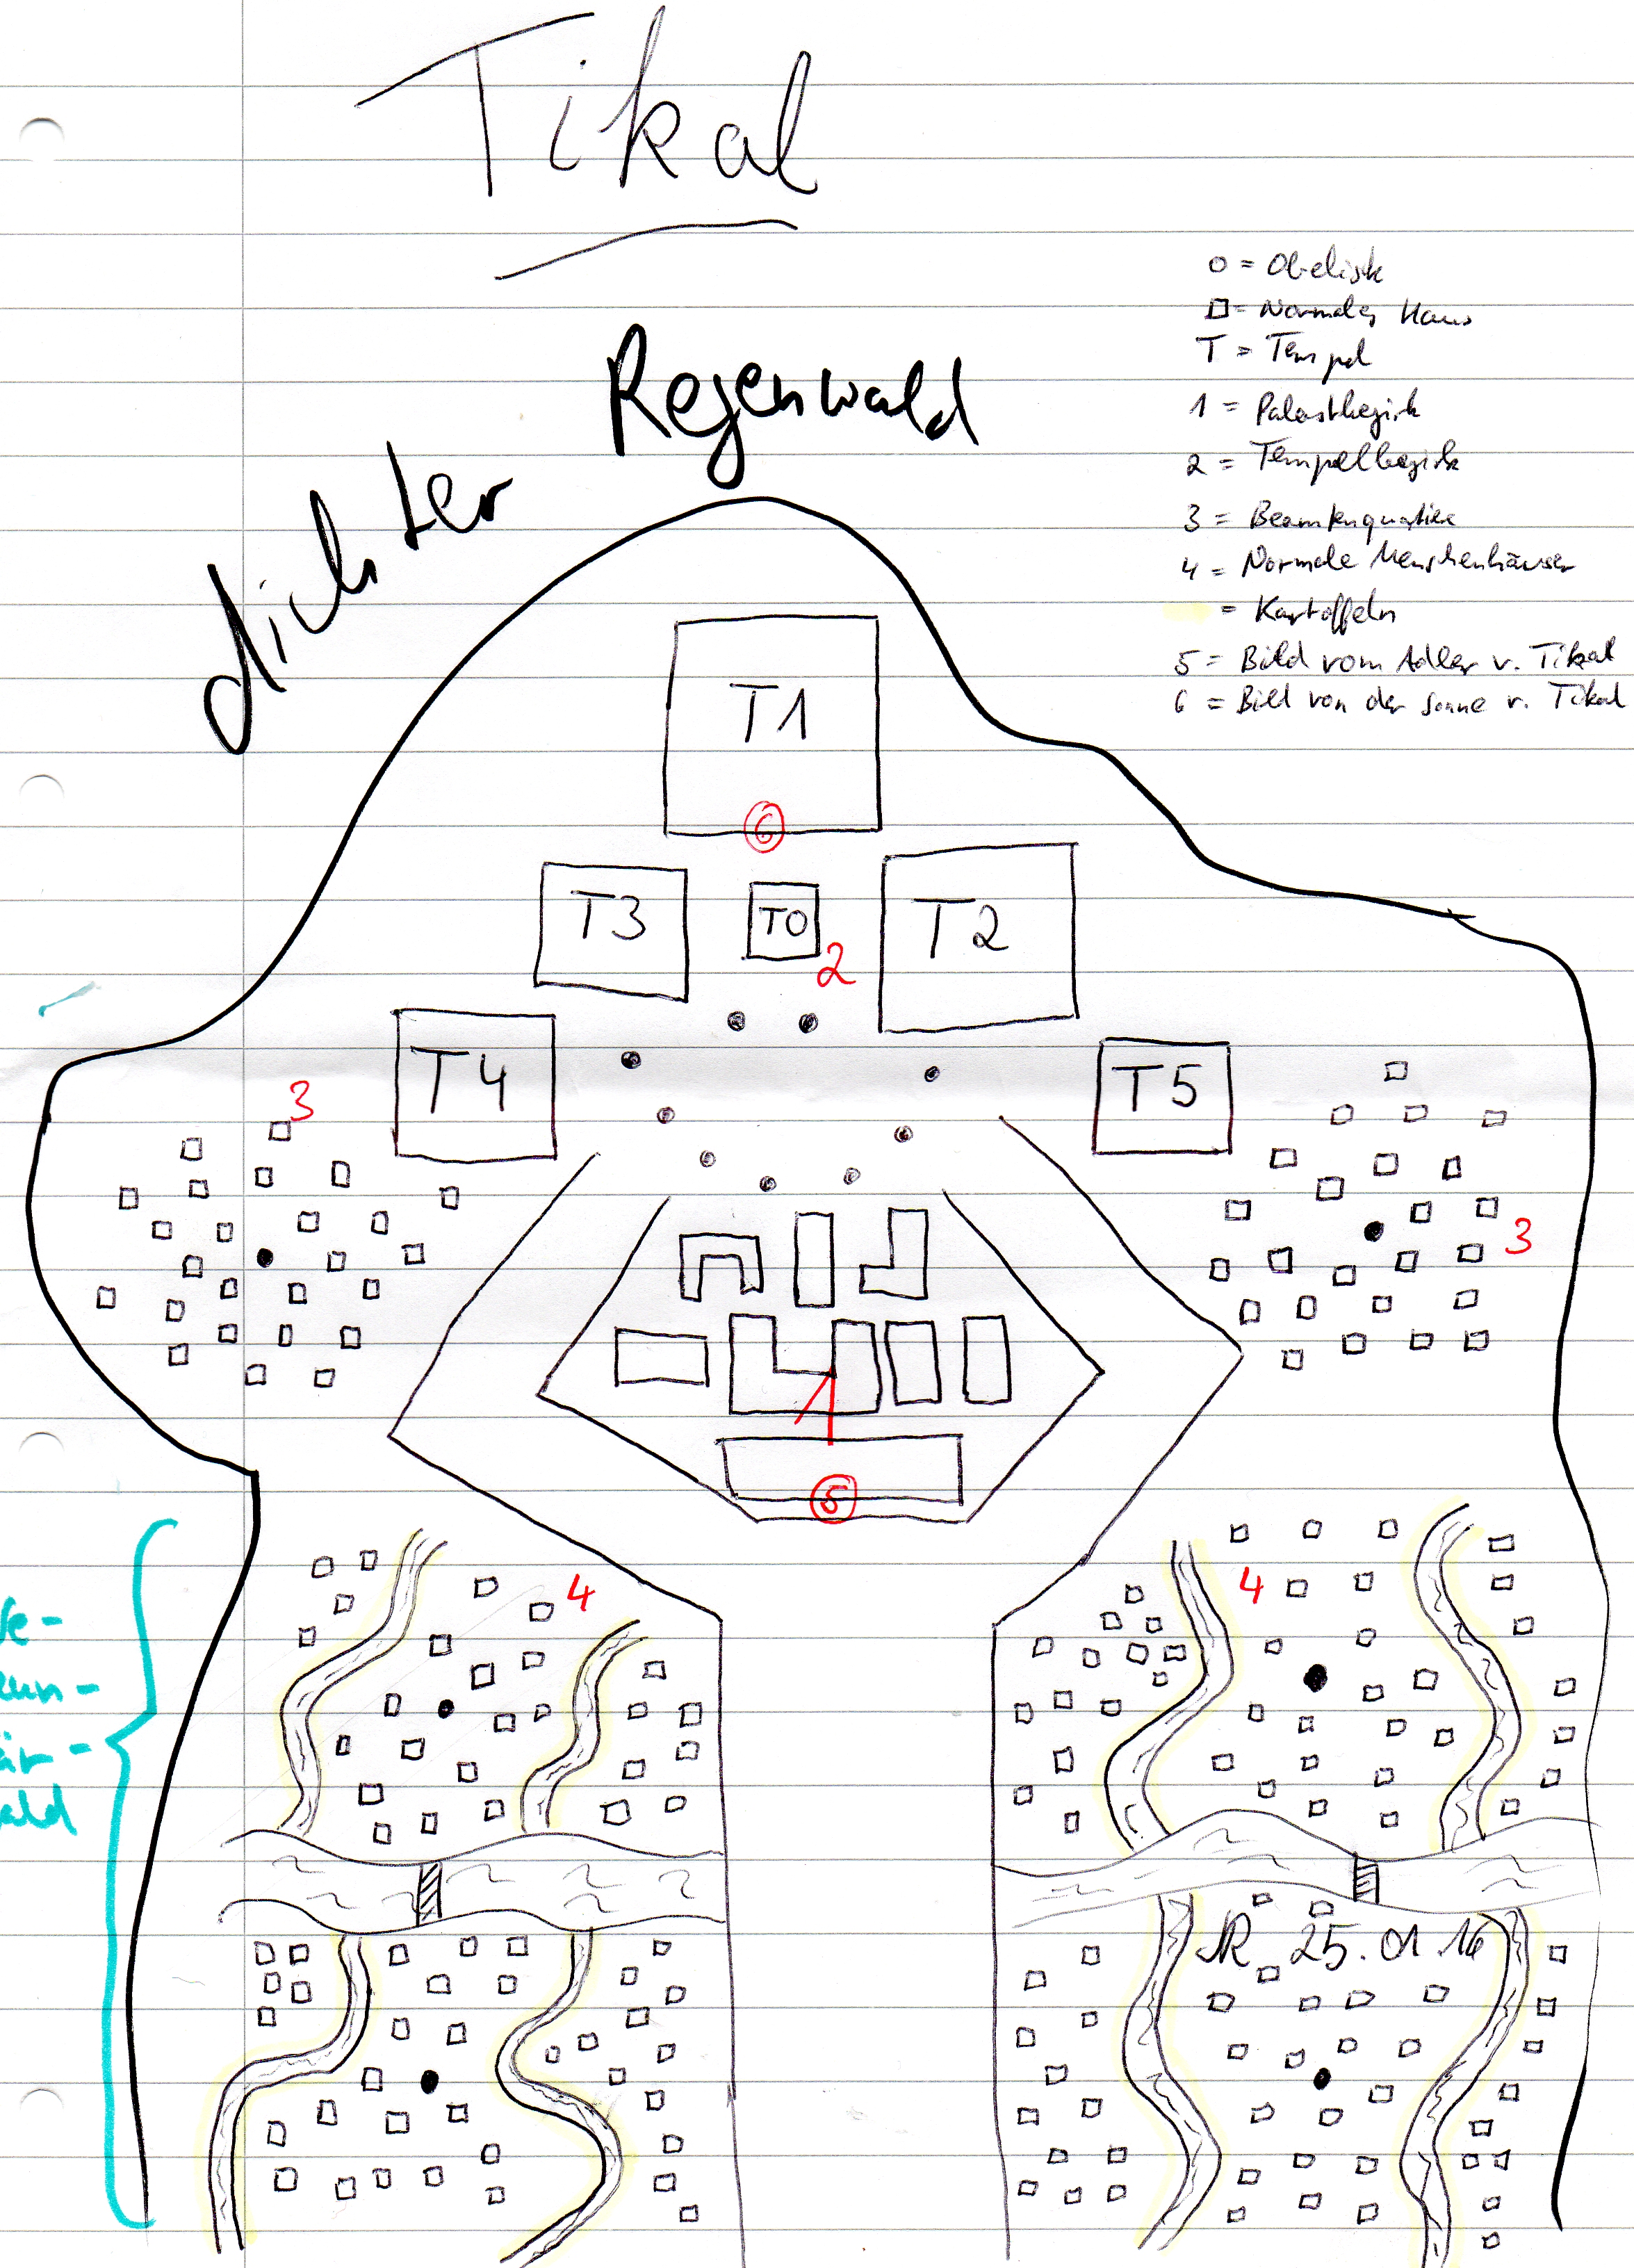 Tikal
o = Obelisk
□ = Normales Haus
T = Tempel
1 = Palastbezirk
2 = Tempelbezirk
3 = Beamtenquartier
4 = Normale Menschenhäuser
= Kartoffeln
5 = Bild vom Adler v. Tikal
6 = Bild von der Sonne v. Tikal
dichter Regenwald
T1
6
T3
T0
T2
2
T4
T5
3
3
1
5
4
4
ald
25.01.16